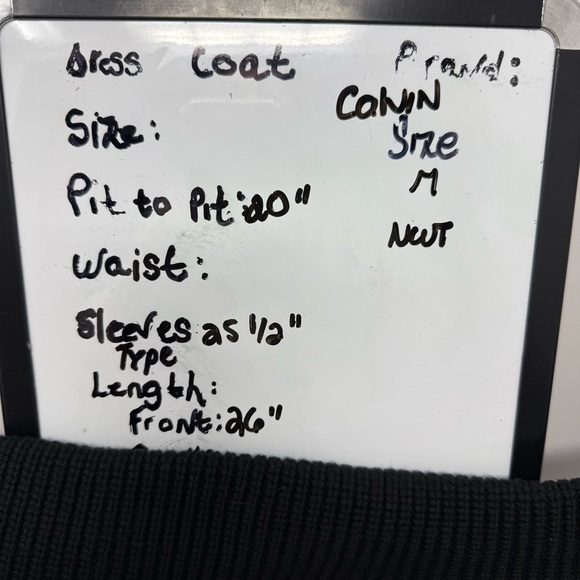 Dress Coat
Size:
Pit to Pit: 20"
Waist:
Sleeves: 25 1/2"
Type
Length:
Front: 26"
Calvin
Size
M
NWT